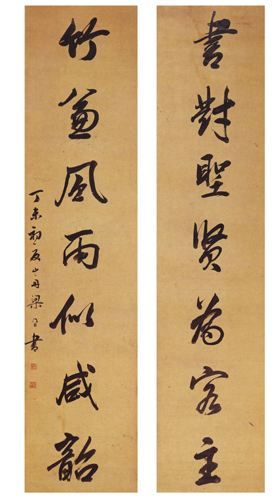 書對聖賢為客主
竹兼風雨似咸韶
丁未初夏山舟梁同書